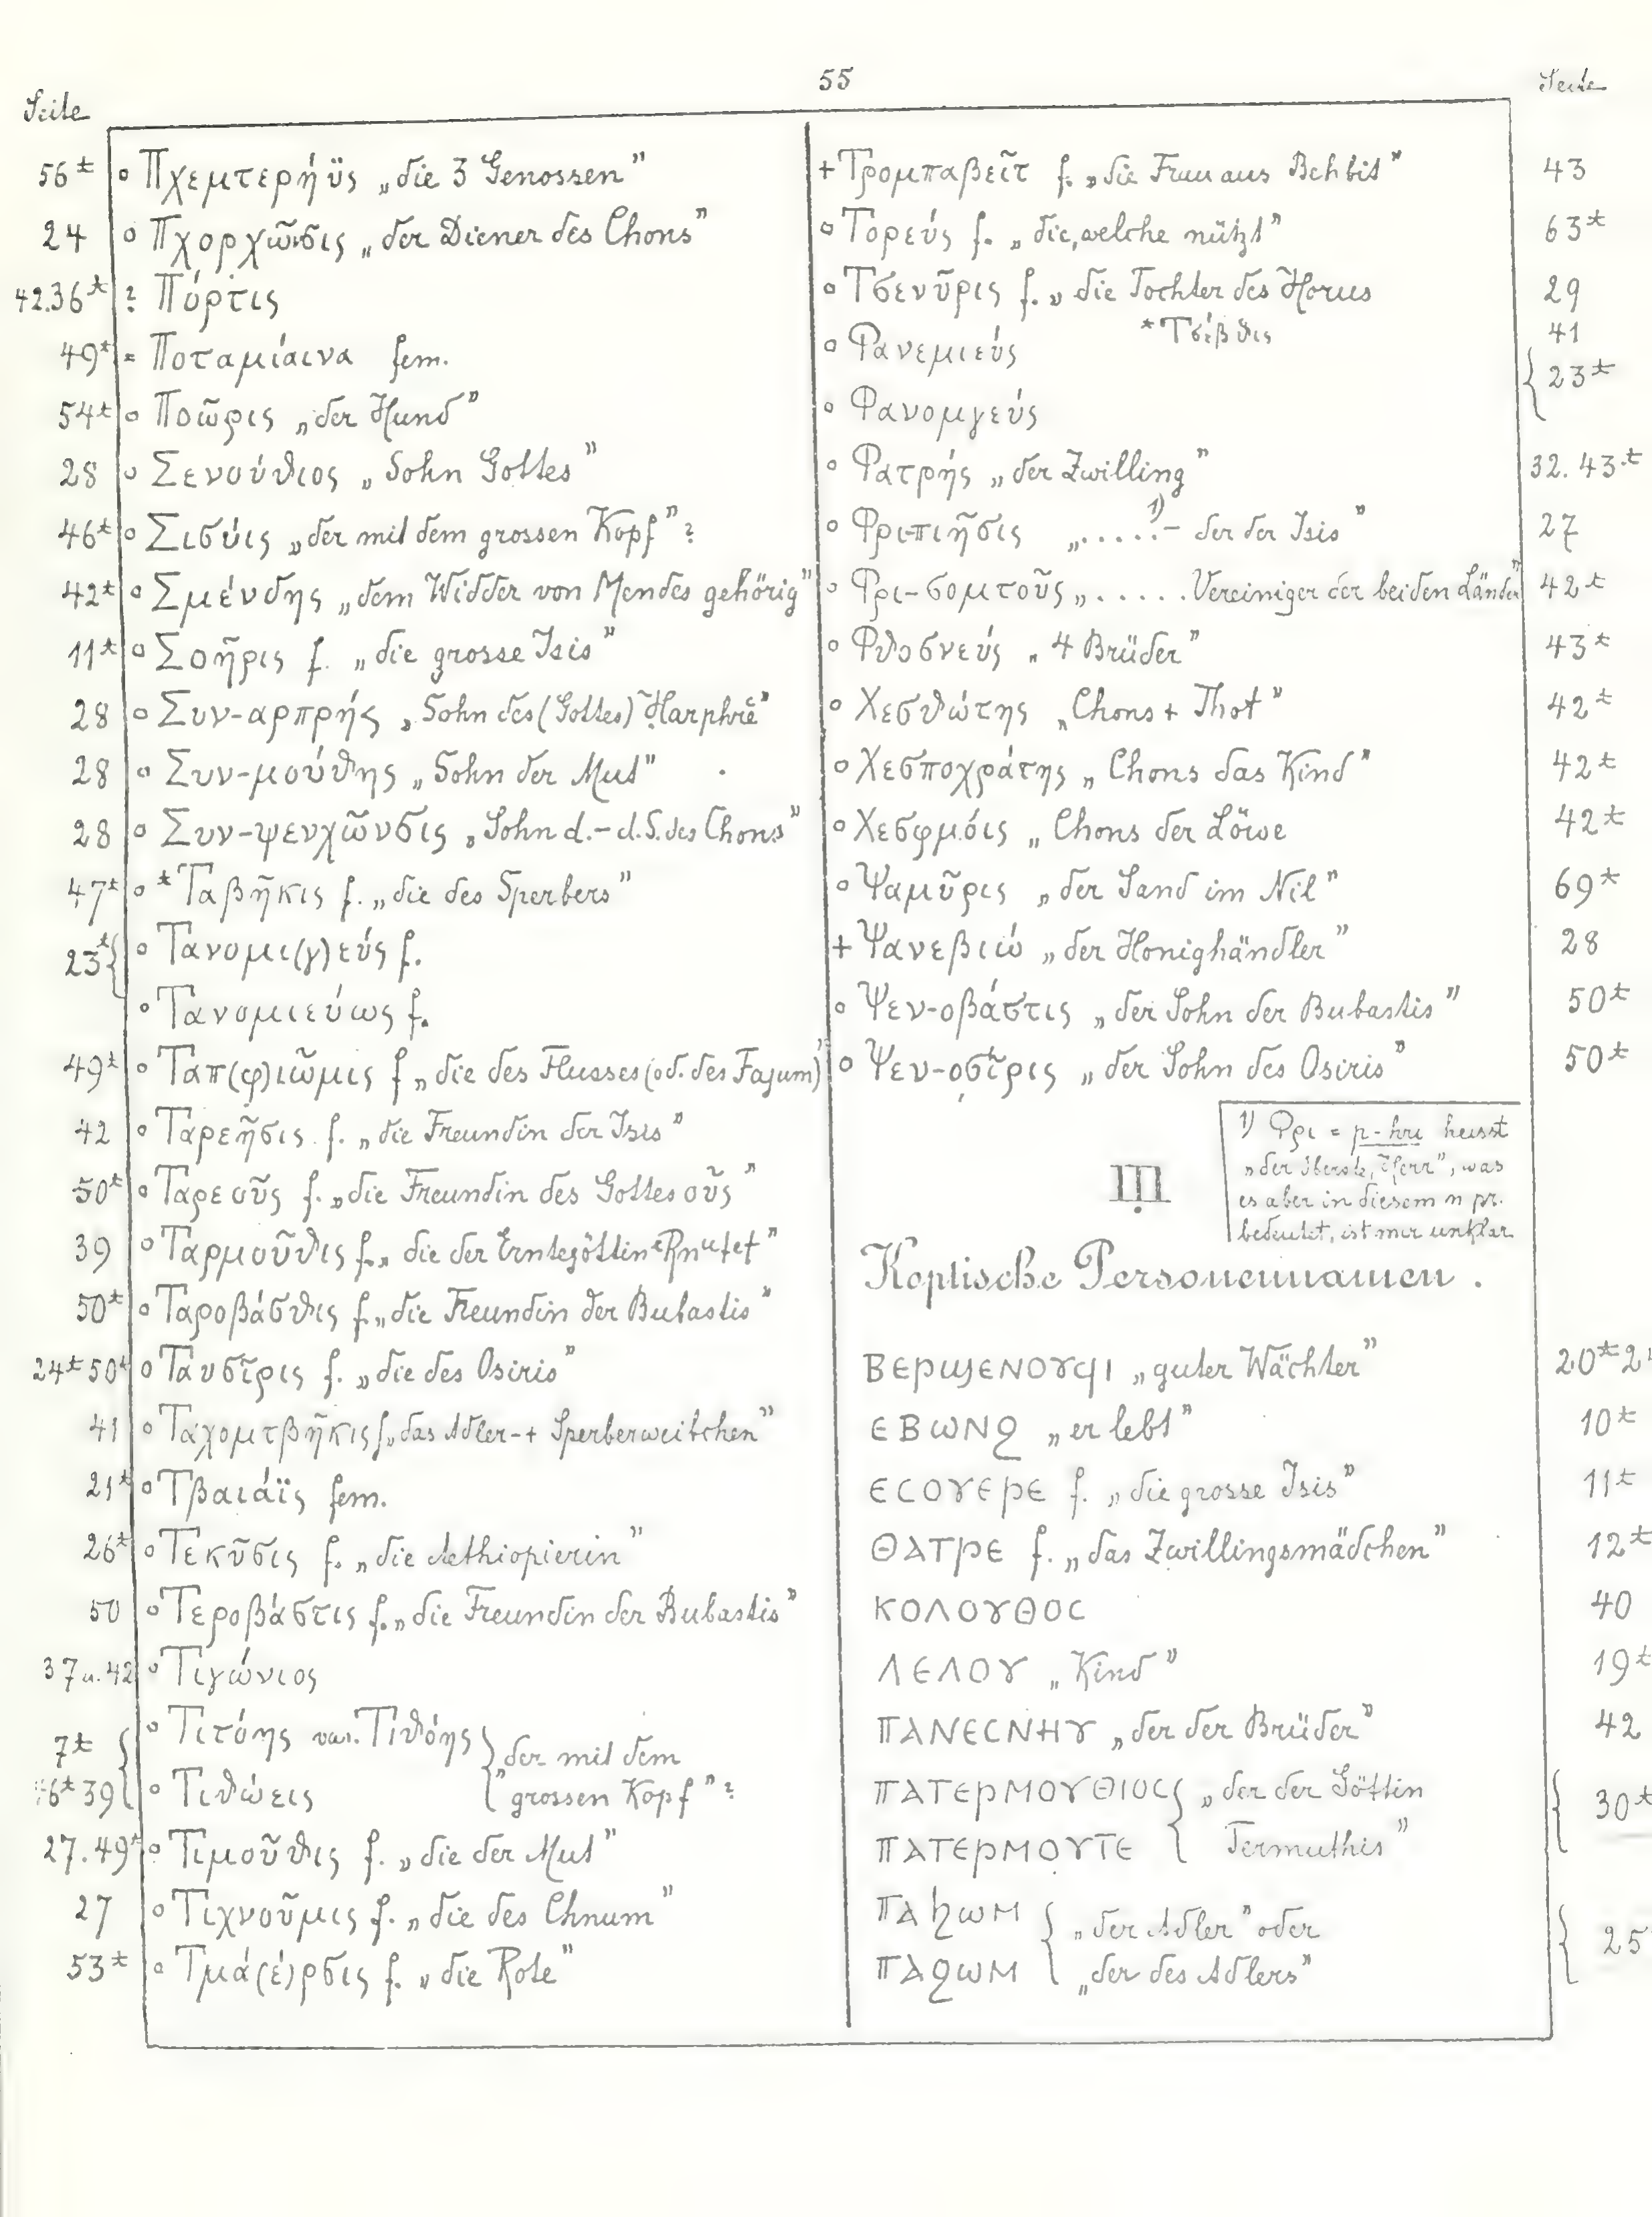 55
Seite
Seite
56* o Πχεμτερήϋς „die 3 Genossen”
24 o Πχορχῶνσις „der Diener des Chons”
42.36* ? Πόρτις
49* = Ποταμίαινα fem.
54* o Ποῶρις „der Hund”
28 o Σενούθιος „Sohn Gottes”
46* o Σισόις „der mit dem grossen Kopf”?
42* o Σμένδης „dem Widder von Mendes gehörig”
11* o Σοῆρις f. „die grosse Isis”
28 o Συν-αρπρής „Sohn des (Gottes) Harphrē”
28 o Συν-μούθης „Sohn der Mut”
28 o Συν-ψενχῶνσις „Sohn d.-d.S. des Chons”
47* o *Ταβῆκις f. „die des Sperbers”
23* { o Τανομι(γ)εύς f.
o Τανομιεύως f.
49* o Ταπ(φ)ιῶμις f „die des Flusses (od. des Fajum)”
42 o Ταρεῆσις f. „die Freundin der Isis”
50* o Ταρεοῦς f. „die Freundin des Gottes οὖς”
39 o Ταρμοῦθις f. „die der Erntegöttin Rnutet”
50* o Ταροβάσθις f. „die Freundin der Bubastis”
24* 50* o Ταυσῖρις f. „die des Osiris”
41 o Ταχομτβῆκις f. „das Adler-+ Sperberweibchen”
21* o Τβαιάϊς fem.
26* o Τεκῦσις f. „die Aethiopierin”
50 o Τεροβάστις f. „die Freundin der Bubastis”
37 u. 42 o Τιγώνιος
7* { o Τιτόης var. Τιθόης } „der mit dem
46* 39 o Τιθώεις grossen Kopf”?
27.49* o Τιμοῦθις f. „die der Mut”
27 o Τιχνοῦμις f. „die des Chnum”
53* o Τμά(έ)ρσις f. „die Rote”
+ Τρομπαβεῖτ f. „die Frau aus Behbit” 43
o Τορεύς f. „die, welche nützt” 63*
o Τσενῦρις f. „die Tochter des Horus 29
* Τσίβθις 41
o Φανεμιεύς } 23*
o Φανομγεύς
o Φατρής „der Zwilling” 32. 43*
o Φρι-πιῆσις „.....¹⁾- der der Isis” 27
o Φρι-σομτοῦς „..... Vereiniger der beiden Länder” 42*
o Φθοσνεύς „4 Brüder” 43*
o Χεσθώτης „Chons + Thot” 42*
o Χεσποχράτης „Chons das Kind” 42*
o Χεσφμόις „Chons der Löwe 42*
o Ψαμῦρις „der Sand im Nil” 69*
+ Ψανεβιώ „der Honighändler” 28
o Ψεν-οβάστις „der Sohn der Bubastis” 50*
o Ψεν-οσῖρις „der Sohn des Osiris” 50*
1) Φρι = p-hri heisst
„der Oberste, Herr”, was
es aber in diesem n pr.
bedeutet, ist mir unklar
III
Koptische Personennamen.
ⲂⲈⲢϢⲈⲚⲞⲨϤⲒ „guter Wächter” 20*
ⲈⲂⲰⲚϨ „er lebt” 10*
ⲈⲤⲞⲨⲈⲢⲈ f. „die grosse Isis” 11*
ⲐⲀⲦⲢⲈ f. „das Zwillingsmädchen” 12*
ⲔⲞⲖⲞⲨⲐⲞⲤ 40
ⲖⲈⲖⲞⲨ „Kind” 19*
ⲠⲀⲚⲈⲤⲚⲎⲨ „der der Brüder” 42
ⲠⲀⲦⲈⲢⲘⲞⲨⲐⲒⲞⲤ { „der der Göttin } 30*
ⲠⲀⲦⲈⲢⲘⲞⲨⲦⲈ Termuthis”
ⲠⲀϦⲰⲘ { „der Adler” oder } 25
ⲠⲀϨⲰⲘ „der des Adlers”